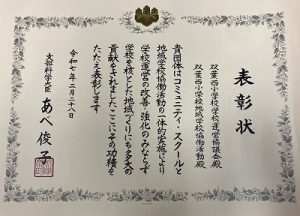 表彰状
双葉西小学校学校運営協議会殿
双葉西小学校地域学校協働活動殿
貴団体はコミュニティ・スクールと
地域学校協働活動の一体的実施により
学校運営の改善・強化のみならず
学校を核とした地域づくりにも多大の
貢献をされました ここにその功績を
たたえ表彰します
令和七年二月二十八日
文部科学大臣 あべ俊子